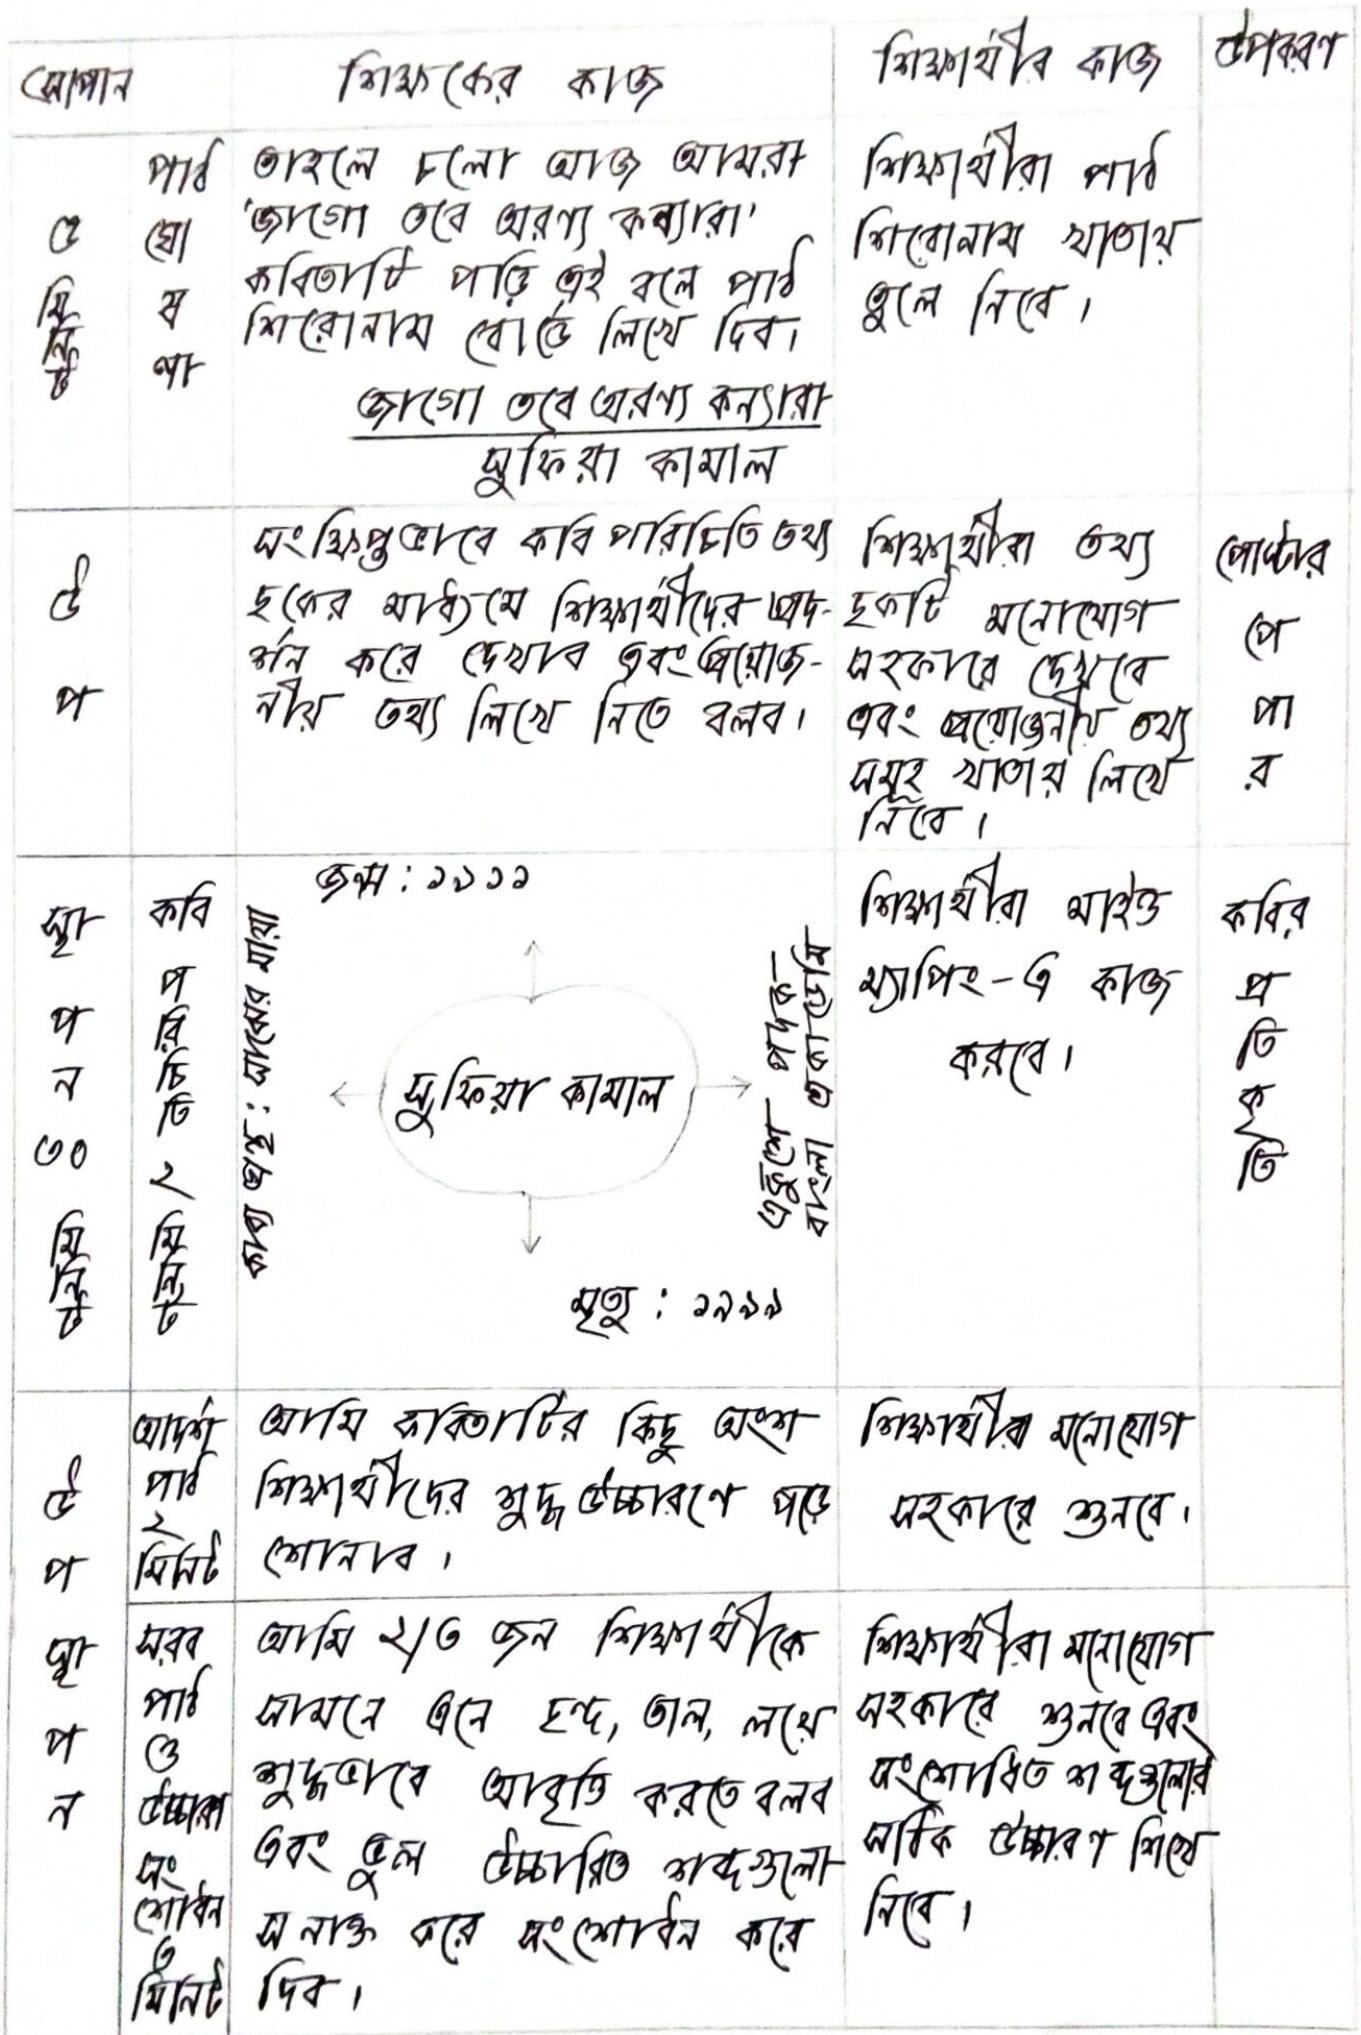 সোপান
শিক্ষকের কাজ
শিক্ষার্থীর কাজ
উপকরণ
৫
মিনিট
পাঠ
ঘো
ষ
ণা
তাহলে চলো আজ আমরা
'জাগো তবে অরণ্য কন্যারা'
কবিতাটি পড়ি এই বলে পাঠ
শিরোনাম বোর্ডে লিখে দিব।
জাগো তবে অরণ্য কন্যারা
সুফিয়া কামাল
শিক্ষার্থীরা পাঠ
শিরোনাম খাতায়
তুলে নিবে।
উ
প
সংক্ষিপ্তভাবে কবি পরিচিতি তথ্য
ছকের মাধ্যমে শিক্ষার্থীদের প্রদ-
র্শন করে দেখাব এবং প্রয়োজ-
নীয় তথ্য লিখে নিতে বলব।
শিক্ষার্থীরা তথ্য
ছকটি মনোযোগ
সহকারে দেখবে
এবং প্রয়োজনীয় তথ্য
সমূহ খাতায় লিখে
নিবে।
পোস্টার
পে
পা
র
স্থা
প
ন
৩০
মিনিট
কবি
পরিচিতি
২
মিনিট
জন্ম : ১৯১১
কাব্য গ্রন্থ : সাঁঝের মায়া
সুফিয়া কামাল
একুশে পদক-
বাংলা একাডেমি
মৃত্যু : ১৯৯৯
শিক্ষার্থীরা মাইন্ড
ম্যাপিং-এ কাজ
করবে।
কবির
প্র
তি
কৃ
তি
উ
প
স্থা
প
ন
আদর্শ
পাঠ
২
মিনিট
আমি কবিতাটির কিছু অংশ
শিক্ষার্থীদের শুদ্ধ উচ্চারণে পড়ে
শোনাব।
শিক্ষার্থীরা মনোযোগ
সহকারে শুনবে।
সরব
পাঠ
ও
উচ্চারণ
সং
শোধন
৩
মিনিট
আমি ২/৩ জন শিক্ষার্থীকে
সামনে এনে ছন্দ, তাল, লয়ে
শুদ্ধভাবে আবৃত্তি করতে বলব
এবং ভুল উচ্চারিত শব্দগুলো
সনাক্ত করে সংশোধন করে
দিব।
শিক্ষার্থীরা মনোযোগ
সহকারে শুনবে এবং
সংশোধিত শব্দগুলোর
সঠিক উচ্চারণ শিখে
নিবে।